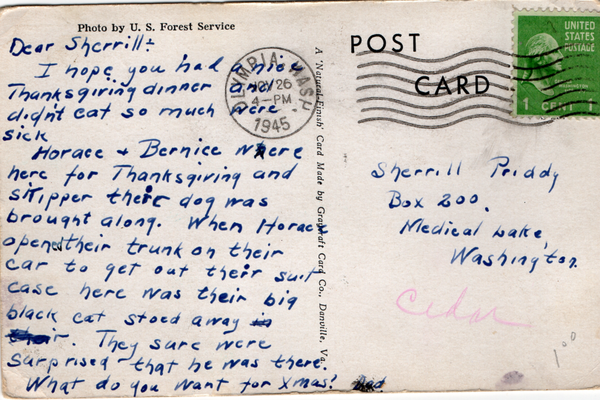 Photo by U. S. Forest Service
Dear Sherrill:-
I hope you had a nice
Thanksgiving dinner and
didn't eat so much were
sick
Horace + Bernice where
here for Thanksgiving and
skipper their dog was
brought along. When Horace
opend their trunk on their
car to get out their suit
case here was their big
black cat stoed away in
their. They sure were
surprised that he was there.
What do you want for Xmas?
OLYMPIA, WASH
NOV 26
4-PM
1945
A 'Natural-Finish' Card Made by Graycraft Card Co., Danville, Va.
POST
CARD
UNITED
STATES
POSTAGE
WASHINGTON
1 CENT 1
Sherrill Priddy
Box 200.
Medical Lake
Washington.
Cedar
100